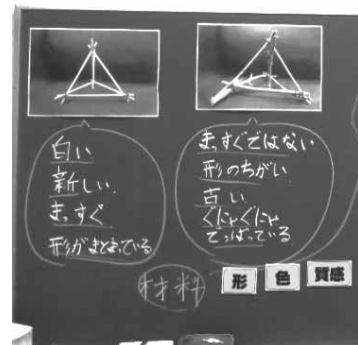 白い
新しい
まっすぐ
形がまとまっている
まっすぐではない
形のちがい
古い
ぐにゃぐにゃ
でっぱっている
材料
形
色
質感